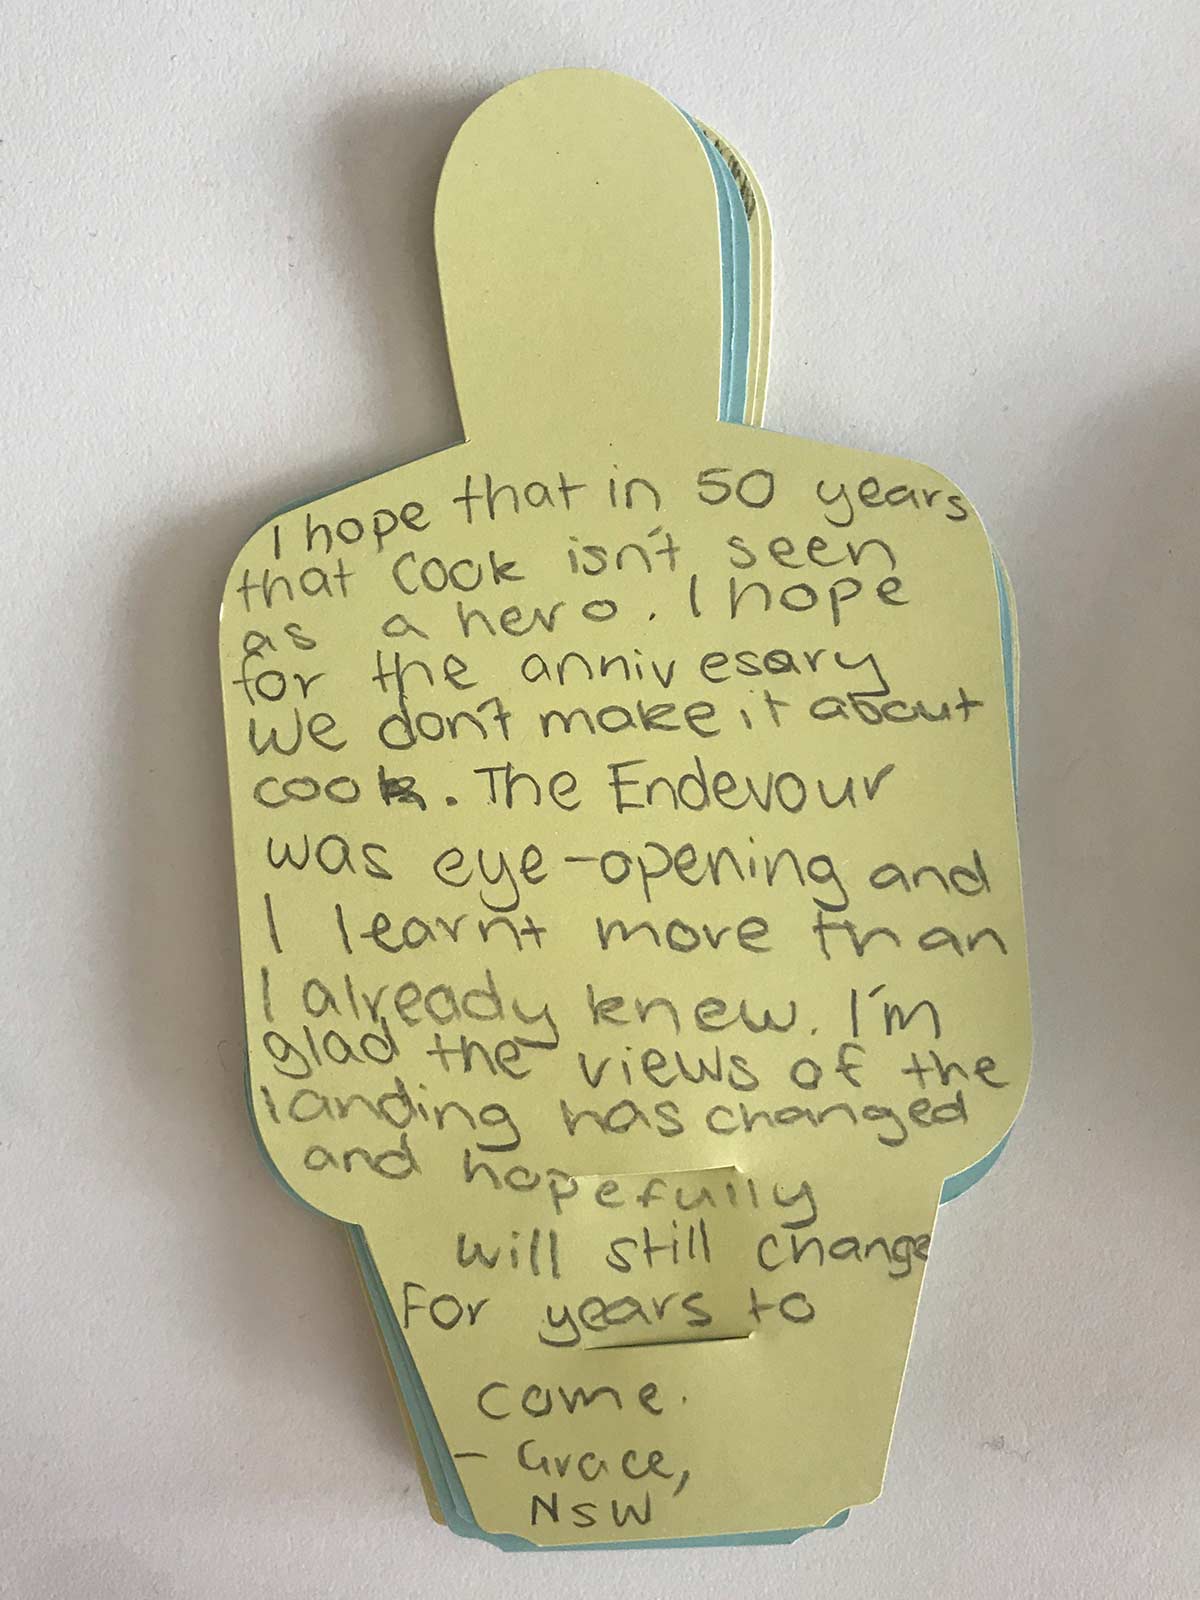 I hope that in 50 years
that Cook isn't seen
as a hero. I hope
for the annivesary
we don't make it about
cook. The Endevour
was eye-opening and
I learnt more than
I already knew. I'm
glad the views of the
landing has changed
and hopefully
will still change
For years to
come.
- Grace,
NSW